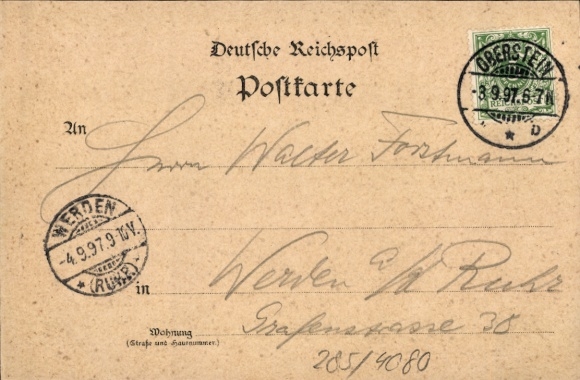 Deutsche Reichspost
Postkarte
OBERSTEIN
-3.9.97.6-7N
b
An
Herrn Walter Forstmann
WERDEN
-4.9.97.9-10V.
(RUHR)
in Werden a/d Ruhr
Wohnung
(Straße und Hausnummer)
Grafenstrasse 38
285/4080